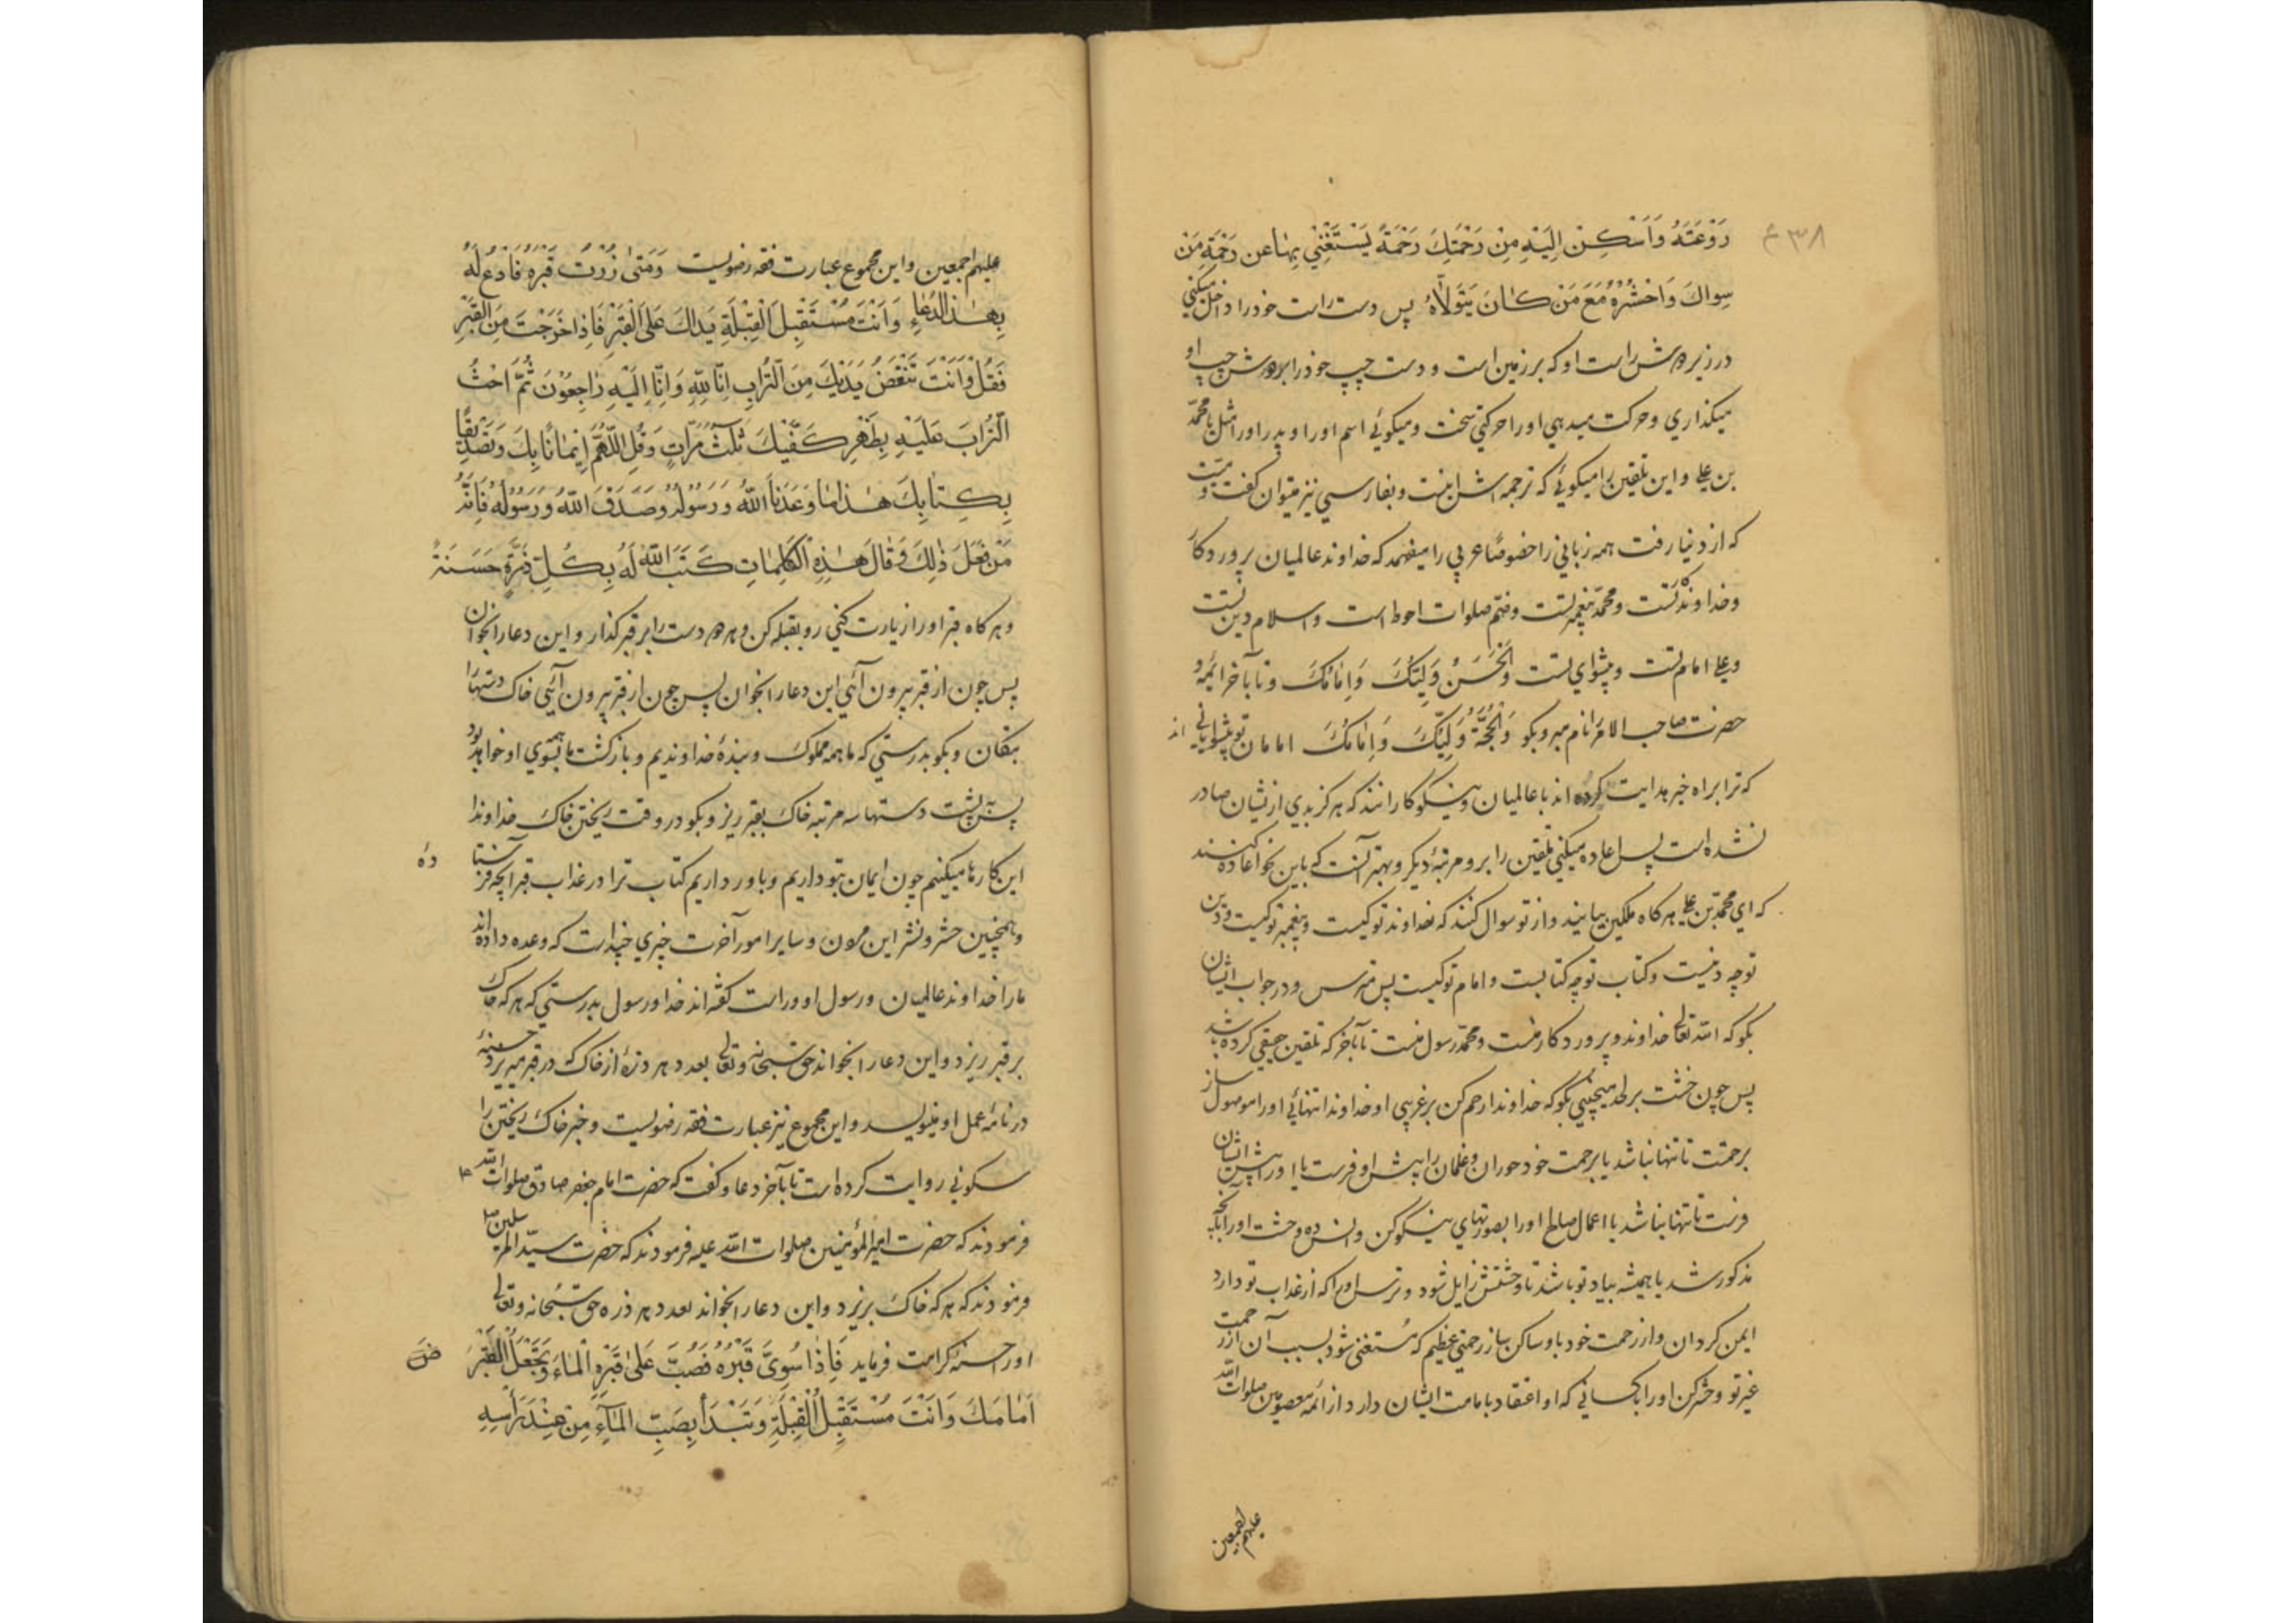 ۳۸ ع
رَوْعَتَهُ وَاَسْكِنْ اِلَيْهِ مِنْ رَحْمَتِكَ رَحْمَةً يَسْتَغْنِي بِهٰا عَن رَحْمَةِ مَنْ
سِواكَ وَاحْشُرْهُ مَعَ مَنْ كٰانَ يَتَوَلاّٰهُ پس دست راست خود را داخل ميكني
در زير دوش راست او كه بر زمين است و دست چپ خود را بر دوش چپ او
ميكذاري و حركت ميدهي او را حركتي سخت و ميكوئي اسم او را و پدر او را مثل يا محمّد
بن علي و اين تلقين را ميكوئي كه ترجمه اش اينست و بفارسي نيز ميتوان كفت و ميّت
كه از دنيا رفت همه زباني را خصوصًا عربي را ميفهمد كه خداوند عالميان پروردكار
و خداوند تست و محمّد پيغمبر تست و ضمّ صلوات احوط است و اسلام دين تست
و علي امام تست و پيشواي تست وَالْحَسَنُ وَلِيُّكَ وَاِمٰامُكَ و تا بآخر ائمه و
حضرت صاحب الامر را نام مبر و بكو وَالْحُجَّةُ وَلِيُّكَ وَاِمٰامُكَ امامان تو پيشوايانى اند
كه ترا براه خير هدايت كرده اند با عالميان و نيكوكارانند كه هركز بدي از يشان صادر
نشده است پس اعاده ميكني تلقين را برو مرتبهٔ ديكر و بهتر آنست كه باين نحو اعاده كنند
كه اي محمّد بن علي هركاه ملكين بيايند و از تو سوال كنند كه خداوند تو كيست و پيغمبر تو كيست و دين
تو چه دينيست و كتاب تو چه كتابيست و امام تو كيست پس مترس و در جواب ايشان
بكو كه الله تعالى خداوند و پروردكار منست و محمّد رسول منست تا بآخر كه تلقين حقيقي كرده باشد
پس چون خشت بر لحد ميچيني بكو كه خداوندا رحم كن بر غريبي او خداوندا تنهائي او را موصول ساز
برحمتت تا تنها نباشد يا برحمت خود حوران و غلمان را پيش او فرست يا او را پيش ايشان
فرست تا تنها نباشد يا اعمال صالح او را بصورتهاي نيكو كن و انس ده وحشت او را بآنچه
مذكور شد يا هميشه بياد تو باشد تا وحشتش زايل شود و ترس او را كه از عذاب تو دارد
ايمن كردان و از رحمت خود باو ساكن ساز رحمتي عظيم كه مستغني شود بسبب آن از رحمت
غير تو و حشر كن او را با كساني كه او اعتقاد بامامت ايشان دارد از ائمهٔ معصومين صلوات الله
عليهم اجمعين
عليهم اجمعين و اين مجموع عبارت فقه رضويست وَمَتىٰ زُرْتَ قَبْرَهُ فَادْعُ لَهُ
بِهٰذَا الدُّعٰاءِ وَاَنْتَ مُسْتَقْبِلَ الْقِبْلَةِ يَدٰاكَ عَلَى الْقَبْرِ فَاِذٰا خَرَجْتَ مِنَ الْقَبْرِ
فَقُلْ وَاَنْتَ تَنْفُضُ يَدَيْكَ مِنَ التُّرٰابِ اِنّٰا لِلّٰهِ وَاِنّٰا اِلَيْهِ رٰاجِعُوْنَ ثُمَّ احْثُ
التُّرٰابَ عَلَيْهِ بِظَهْرِ كَفَّيْكَ ثَلٰثَ مَرّٰاتٍ وَقُلِ اللّٰهُمَّ اِيْمٰانًا بِكَ وَتَصْدِيْقًا
بِكِتٰابِكَ هٰذٰا مٰا وَعَدَنَا اللّٰهُ وَرَسُوْلُهُ وَصَدَقَ اللّٰهُ وَرَسُوْلُهُ فَاِنَّهُ
مَنْ فَعَلَ ذٰلِكَ وَقٰالَ هٰذِهِ الْكَلِمٰاتِ كَتَبَ اللّٰهُ لَهُ بِكُلِّ ذَرَّةٍ حَسَنَةً
و هركاه قبر او را زيارت كني رو بقبله كن و هر دو دست را بر قبر كذار و اين دعا را بخوان
پس چون از قبر بيرون آئي اين دعا را بخوان پس چون از قبر بيرون آئي خاك دستها را
بتكان و بكو بدرستي كه ما همه مملوك و بندهٔ خداونديم و بازكشت ما همه بسوي او خواهد بود
پس به پشت دستها سه مرتبه خاك بقبر ريز و بكو در وقت ريختن خاك خداوندا
اين كارها ميكنيم چون ايمان بتو داريم و باور داريم كتاب ترا در عذاب قبر آنچه فرستا دهٔ
و همچنين حشر و نشر اين مردن و ساير امور آخرت چيزي چند است كه وعده داده اند
ما را خداوند عالميان و رسول او و راست كفته اند خدا و رسول بدرستي كه هر كه خاك
بر قبر ريزد و اين دعا را بخواند حق سبحانه و تعالى بعدد هر ذرهٔ از خاك كه در قبر ميريزد حسنهٔ
در نامهٔ عمل او مينويسد و اين مجموع نيز عبارت فقه رضويست و خبر خاك ريختن را
سكوني روايت كرده است تا بآخر دعا و كفت كه حضرت امام جعفر صادق صلوات الله عليه
فرمودند كه حضرت امير المؤمنين صلوات الله عليه فرمودند كه حضرت سيّد المرسلين ص
فرمودند كه هر كه خاك بريزد و اين دعا را بخواند بعدد هر ذره حق سبحانه و تعالى
او را حسنه كرامت فرمايد فَاِذٰا سُوِىَّ قَبْرُهُ فَصُبَّ عَلىٰ قَبْرِهِ الْمٰاءَ وَتَجْعَلُ الْقَبْرَ
اَمٰامَكَ وَاَنْتَ مُسْتَقْبِلُ الْقِبْلَةِ وَتَبْدَأُ بِصَبِّ الْمٰآءِ مِنْ عِنْدِ رَأْسِهِ